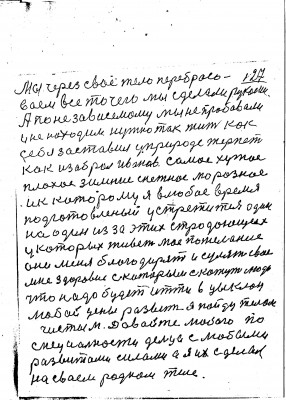 127
Мы через своё тело перебрасо-
ваем все то чего мы сделали руками.
А по независемому мы не пробовали
и не находим нужно так жит как
себя заставил у природе терпет
как избрал иванов. самое хужое
плохое зимние снежное морозное
ик которому я влюбое время
подготовленый устретится один
на один из за этих стродающих
укоторых живет мое пожелание
они меня благодарят и
мне здоровие скоторым скажут люди
что надо будет итти в
любой цены развит. я пойду телом
чистым. Довайте любого по
специалности делца с любыми
развитами силами а я их сделаю
на своем родном теле.